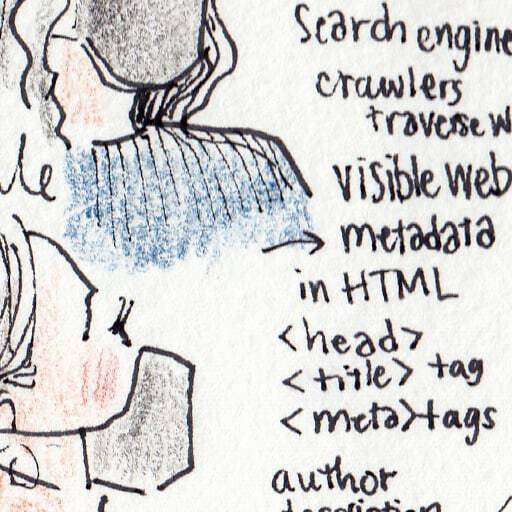 Search engine
crawlers
traverse w
visible web
→ metadata
in HTML
<head>
<title> tag
<meta> tags
author
description